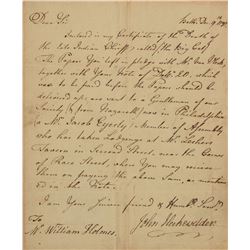 Beth. Dec. 9th 1797
Dear Sir
Inclosed is my Certificate of the Death of
the late Indian Chief, called (the Big Cat)
The Papers You left in pledge with Mr. Van Vleck,
together with Your Note of Doll. 20. which
was to be paid before the Papers should be
delivered up; are sent to a Gentleman of our
Society (& from Nazareth) now in Philadelphia
a Mr. Jacob Eyerly, Member of Assembly
who has taken Lodgings at Mr. Leshers
Tavern in Second Street, near the Corner
of Race Street, where You may receive
them on paying the above Sum, as mention
ed on the Note.
I am Your sincere friend & Humble Servt.
John Heckewelder
To
Mr. William Holmes.